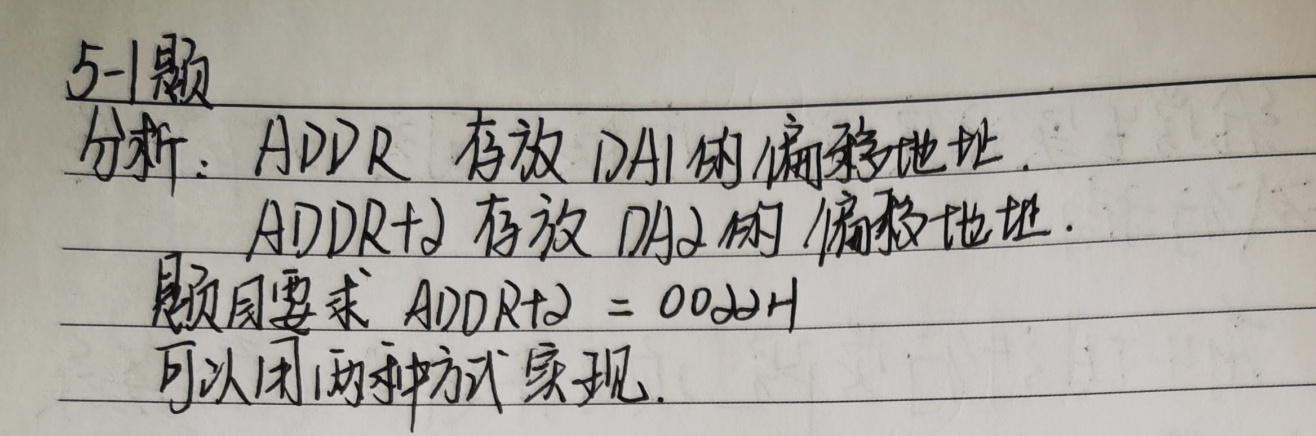 5-1题
分析: ADDR 存放 DA1的偏移地址.
ADDR+2 存放 DA2的偏移地址.
题目要求 ADDR+2 = 0022H
可以用两种方式实现.